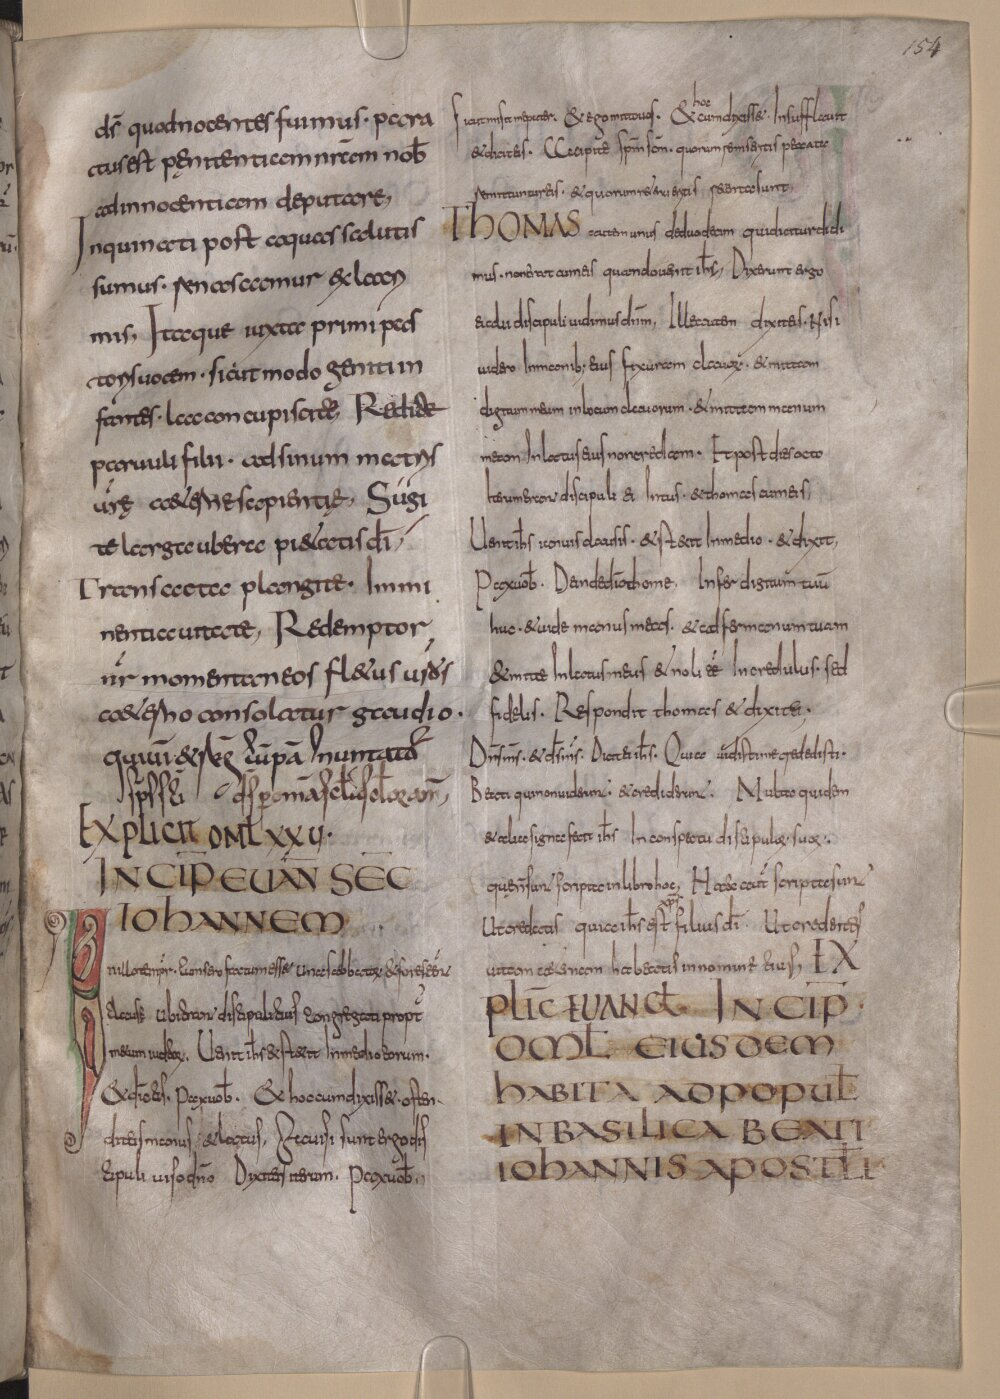 154
ds quod nocentes fuimus· para
tus est penitentiam nram nob
ad innocentiam deputare,
Inquinati post aquas salutis
sumus· renascamur ex lacri
mis, Itaque iuxta primi pas
toris uocem· sicut modo geniti in
fantes· lac concupiscite, Redite
paruuli filii· ad sinum matris
ure aeterne sapientie, Sugi
te larga ubera pietatis di,
Transacta plangite· Immi
nentia uitate, Redemptor
nr momentaneos fletus uros
aeterno consolatur gaudio·
qui uiuit & reg cum patre In unitate
sps sci ds p omia scla sclor am,
Explicit oml xxu·
INCIP EUAN SEC
IOHANNEM
In illo tempr· Cum sero factum esset una sabbator· & fores eent
clause ubi erant discipuli eius congregati propt
metum iudeor, Uenit ihs & stetit In medio eorum·
& dic eis, Pax uob· & hoc cum dixisset· osten
dit eis manus & latus, Gauisi sunt ergo dis
cipuli uiso dno Dixit eis iterum, Pax uob,
Sicut misit me pater· & ego mitto uos· & hoc cum dixisset· Insufflauit
& dicit eis· Accipite spm scm· quorum remiseritis peccata
remittuntur eis· & quorum retinueritis retenta sunt,
THOMAS autem unus de duodecim qui dicitur didi
mus· non erat cum eis quando uenit ihs, Dixerunt ergo
ei alii discipuli uidimus dnm, Ille autem dixit eis· Nisi
uidero In manib; eius fixuram clauor· & mittam
digitum meum in locum clauorum· & mittam manum
meam In latus eius non credam· Et post dies octo
Iterum erant discipuli ei Intus· & thomas cum eis,
Uenit ihs ianuis clausis· & stetit In medio· & dixit,
Pax uob· Deinde dic thome, Infer digitum tuu
huc· & uide manus meas· & adfer manum tuam
& mitte In latus meus & noli ee Incredulus· sed
fidelis· Respondit thomas & dixit ei·
Dns ms· & ds ms· Dicit ei ihs· Quia uidisti me credidisti·
Beati qui non uider· & credider· Multa quidem
& alia signa fecit ihs In conspectu discipulor suor·
que n sunt scripta in libro hoc, Haec aut scripta sunt
Ut credatis quia ihs est xps filius di· Ut credentes
uitam aeternam habeatis in nomine eius, EX
PLIC EUANGL· INCIP·
OML EIUSDEM
HABITA AD POPUL
IN BASILICA BEATI
IOHANNIS APOSTLI